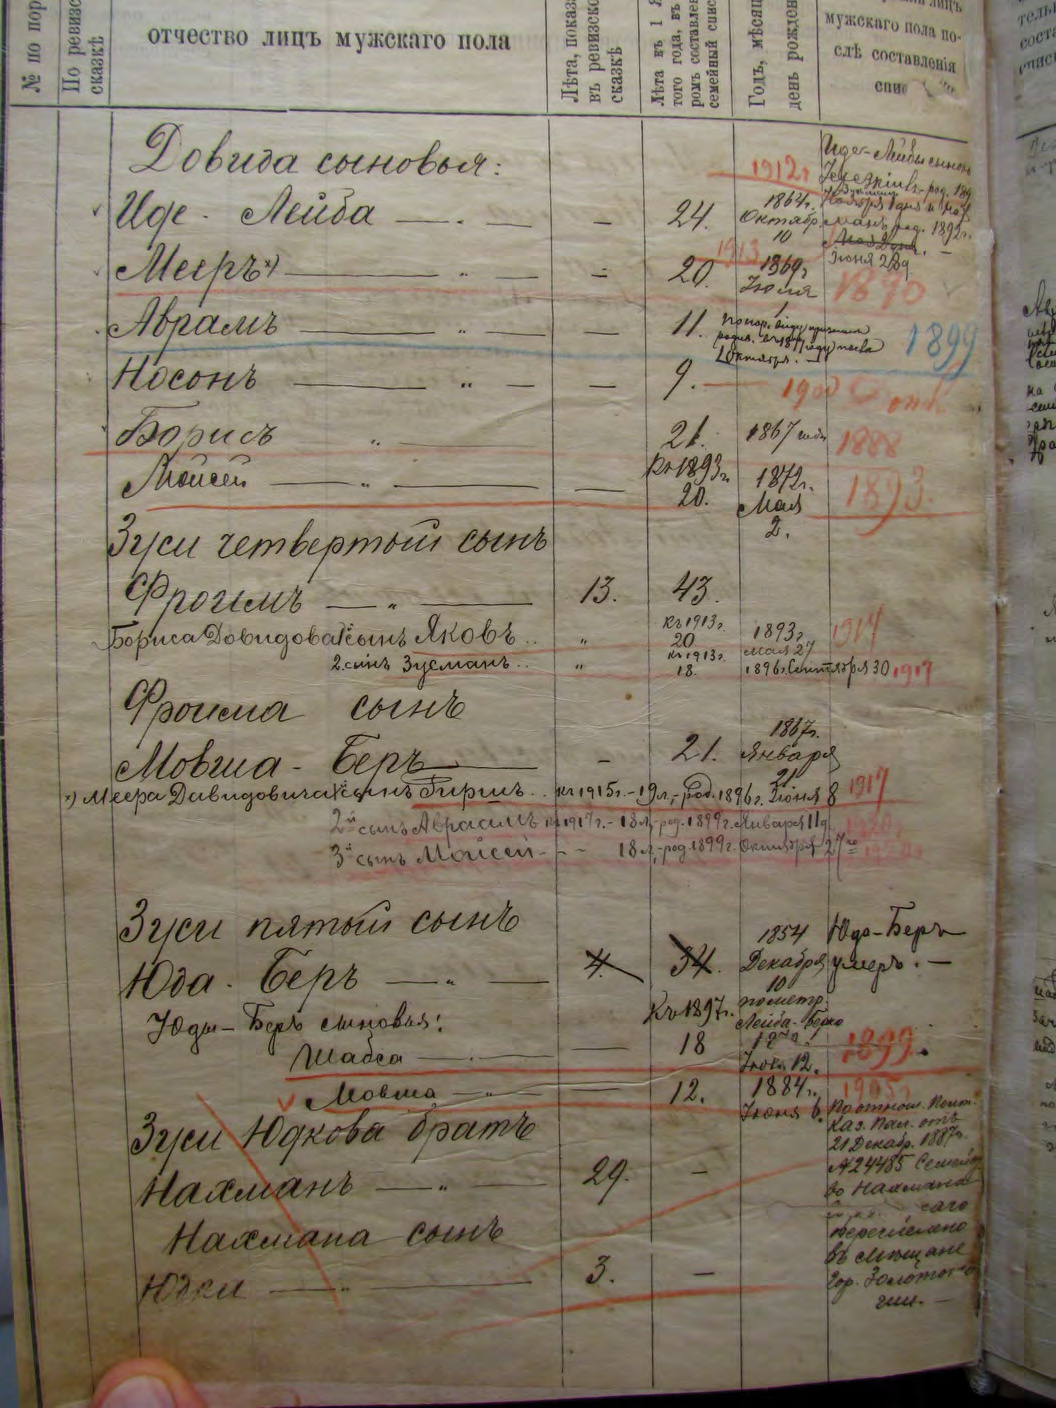 № по пор
По ревизс
сказкѣ
отчество лицъ мужскаго пола
Лѣта, показ
въ ревизско
сказкѣ
Лѣта къ 1 Я
того года, въ
ромъ составлен
семейный спис
Годъ, мѣсяц
день рожден
лицъ
мужскаго пола по-
слѣ составленія
спис
Довида сыновья:
1912г
Иде-Лейбы сынов
Иде - Лейба — " — — 24. 1864г. Октябр 10
род. 1892г.
Іюня 28д
Мееръ*) — " — — 20. 1869г Іюля 1
1913
1890
Аврамъ — " — — 11.
1899
Октября. 1
Носонъ — " — — 9. — 1900
Борисъ — " — 21. 1867 года 1888
Мойсей — " — — Къ 1893г. 20. 1872г. Мая 2. 1893.
Зуси четвертый сынъ
Фроимъ — " — 13. 43.
Бориса Давидова 1й сынъ Яковъ.. " къ 1913г. 20 1893г. мая 27 1914
2. сынъ Зусманъ.. " къ 1913г. 18. 1896г. Сентября 30 1917
Фроима сынъ
Мовша - Беръ — — 21. 1867г. Января 21
*) Меера Давидовича 1й сынъ Гиршъ.. къ 1915г. - 19 л, - род. 1896г. Іюня 8 1917
2й сынъ Авраамъ къ 1917г. - 18 л, - род. 1899г. Января 11д 1920
3й сынъ Мойсей - - - 18 л, - род 1899г. Октября 27го
Зуси пятый сынъ
Юда - Беръ — " — 4. 34. 1854 Декабря 10 Юдо-Беръ умеръ. —
Юды - Беръ сыновья: Къ 1897г. посметр. Лейба-Берко
Шабса — " — — 18 Іюня 12. 1899.
Мовша — " — — 12. 1884г. Іюня 6. 1905г
Зуси Юдкова братъ
По отнош. Полт.
Каз. Пал. отъ
21 Декабр. 1887г.
№ 24485 Семейс
Нахманъ — " — 29. —
во Нахмана
саго
Нахмана сынъ
перечислено
въ мѣщане
Юдки — " — 3. —
гор. Золотон
ши. —